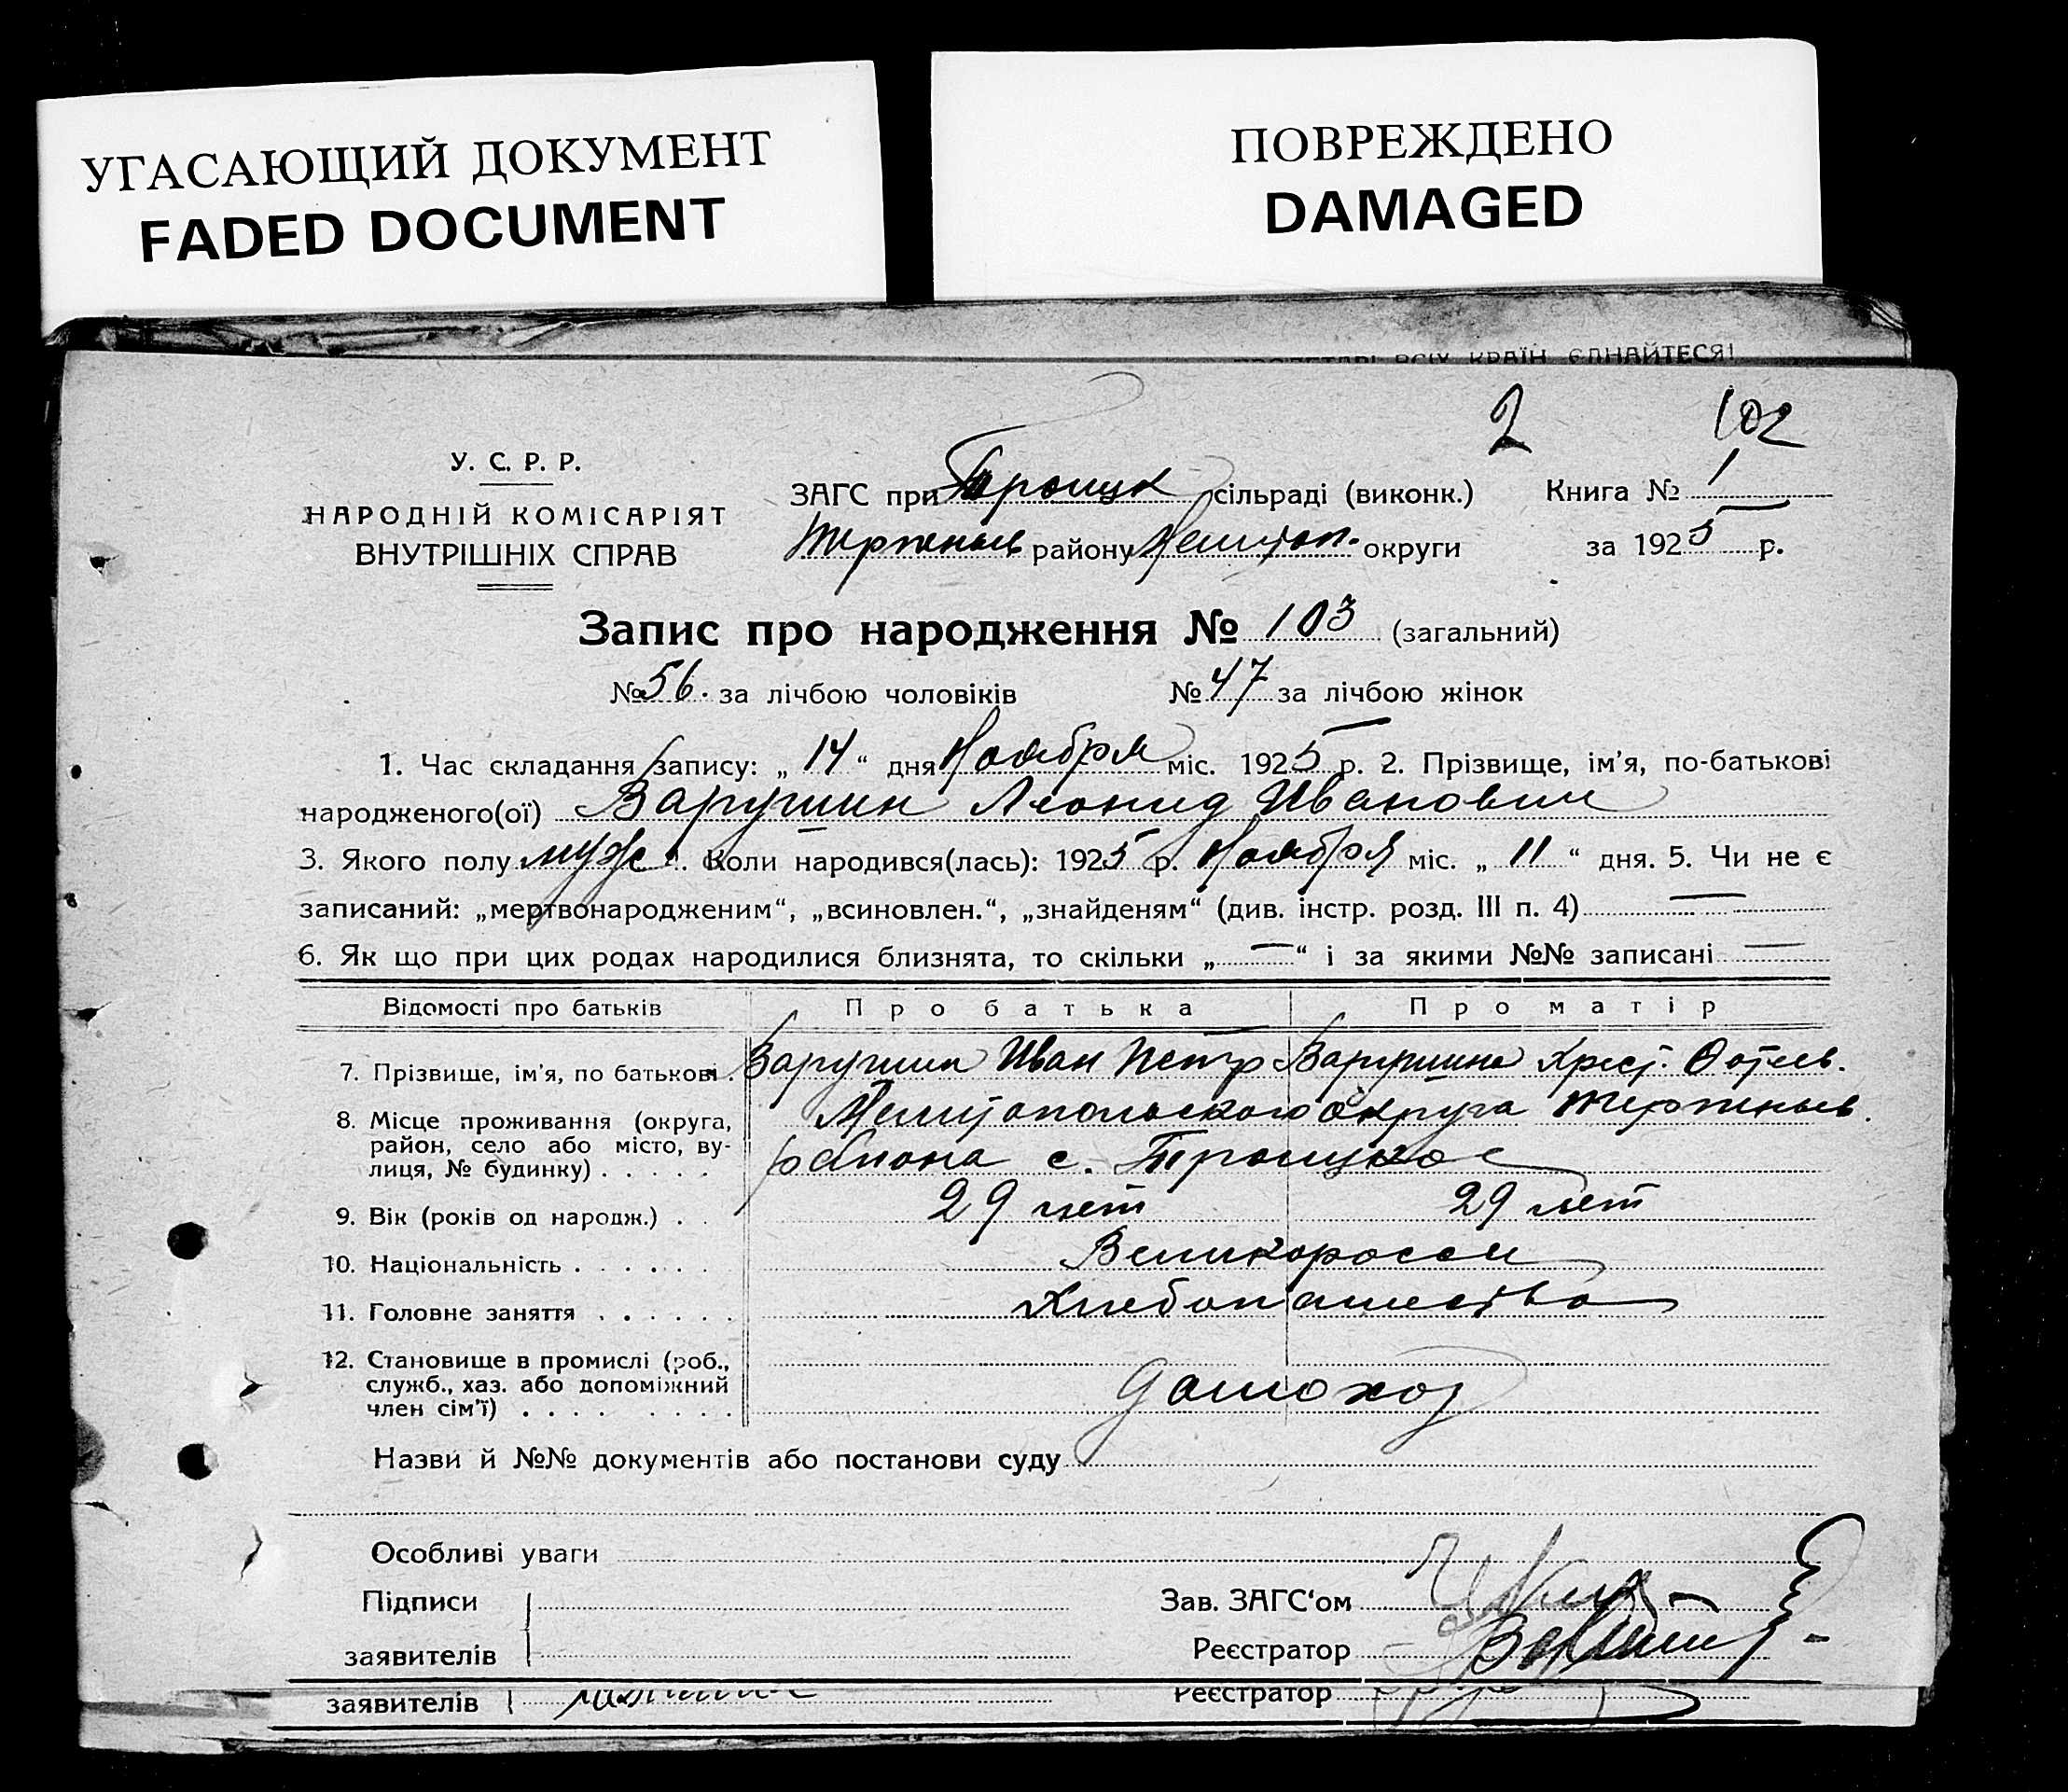 УГАСАЮЩИЙ ДОКУМЕНТ
FADED DOCUMENT
ПОВРЕЖДЕНО
DAMAGED
ПРОЛЕТАРІ ВСІХ КРАЇН, ЄДНАЙТЕСЯ!
2 102
У. С. Р. Р.
НАРОДНІЙ КОМІСАРІЯТ
ВНУТРІШНІХ СПРАВ
ЗАГС при Троицк сільраді (виконк.) Книга № 1
району Мелитоп. округи за 1925 р.
Запис про народження № 103 (загальний)
№ 56. за лічбою чоловіків № 47 за лічбою жінок
1. Час складання запису: „ 14 “ дня Ноября міс. 1925 р. 2. Прізвище, ім'я, по-батькові
народженого(ої) Варушин Леонид Иванович
3. Якого полу муж. Коли народився(лась): 1925 р. Ноября міс. „ 11 “ дня. 5. Чи не є
записаний: „мертвонародженим“, „всиновлен.“, „знайденям“ (див. інстр. розд. III п. 4) —
6. Як що при цих родах народилися близнята, то скільки „ — “ і за якими №№ записані —
Відомості про батьків Про батька Про матір
7. Прізвище, ім'я, по батькові . Варушин Иван Петр Варушина Хрест.
8. Місце проживання (округа,
район, село або місто, ву-
лиця, № будинку) . . . . .
Мелитопольского округа
района с. Троицкое
9. Вік (років од народж.) . . 29 лет 29 лет
10. Національність . . . . . . Великоросси
11. Головне заняття . . . . . . Хлебопашество
12. Становище в промислі (роб.,
служб., хаз. або допоміжний
член сім'ї) . . . . . . . . .
домохоз
Назви й №№ документів або постанови суду
Особливі уваги
Підписи
заявителів
Зав. ЗАГС'ом
Реєстратор
заявителів Реєстратор